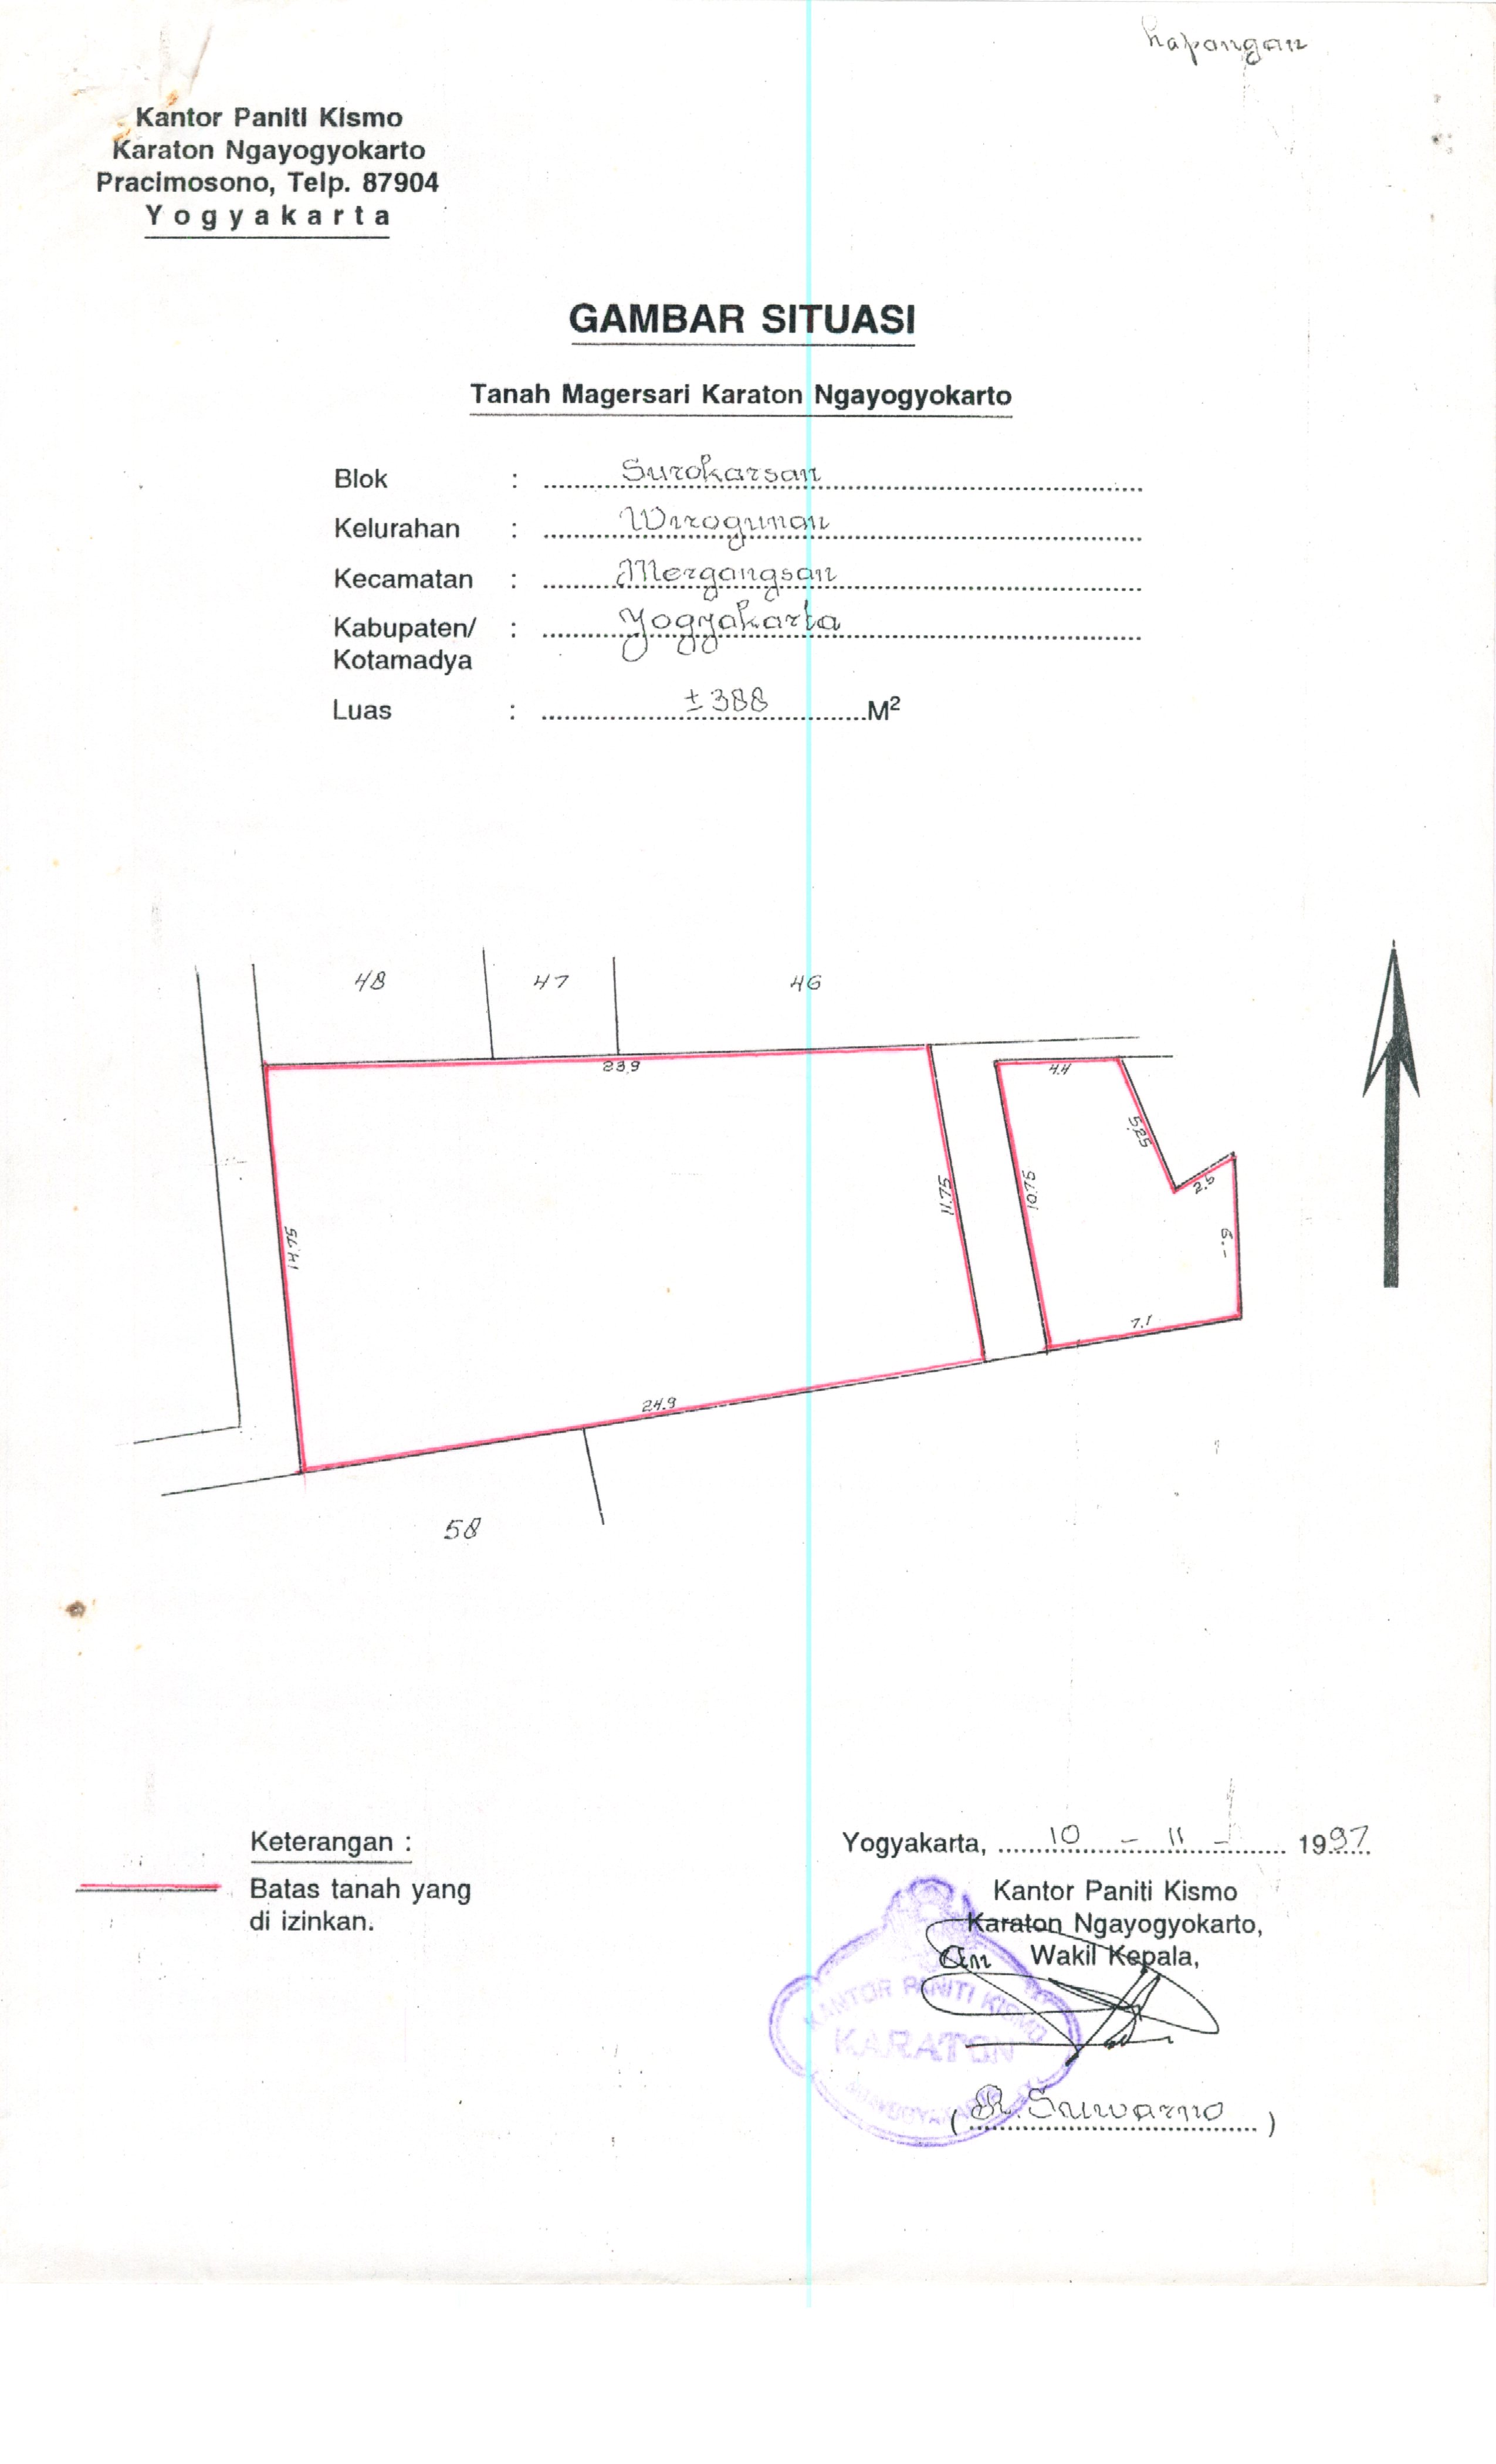 Lapangan
Kantor Paniti Kismo
Karaton Ngayogyokarto
Pracimosono, Telp. 87904
Yogyakarta
GAMBAR SITUASI
Tanah Magersari Karaton Ngayogyokarto
Blok : Surokarsan
Kelurahan : Wirogunan
Kecamatan : Mergangsan
Kabupaten/ : Yogyakarta
Kotamadya
Luas : ± 388 M²
48 47 46
23,9
4.4
5,25
14,75
11.75
10.75
2.5
6.-
7.1
24.9
58
Keterangan :
Batas tanah yang
di izinkan.
Yogyakarta, 10 - 11 - 1997
Kantor Paniti Kismo
Karaton Ngayogyokarto,
Wakil Kepala,
KANTOR PANITI KISMO
KARATON
(R. Suwarno)